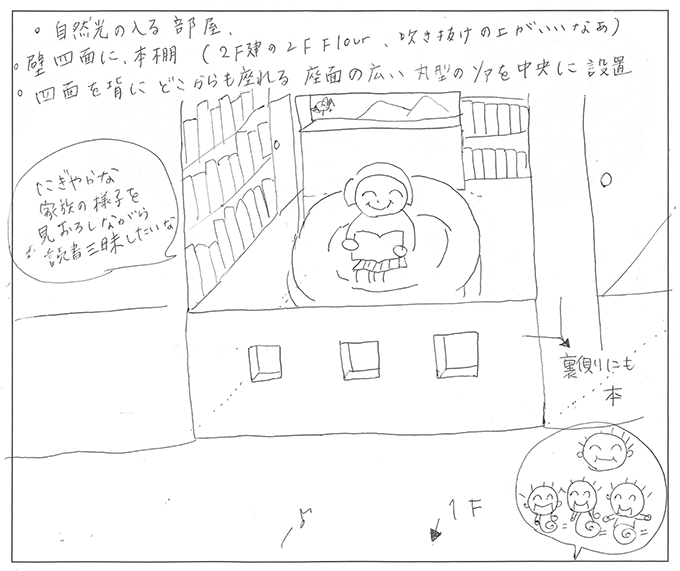 ・自然光の入る部屋、
・壁四面に、本棚 (2F建の2F Flour、吹き抜けの上がいいなあ)
・四面を背にどこからも座れる座面の広い丸型のソファを中央に設置
にぎやかな
家族の様子を
見おろしながら
読書三昧したいな
裏側にも
本
1F